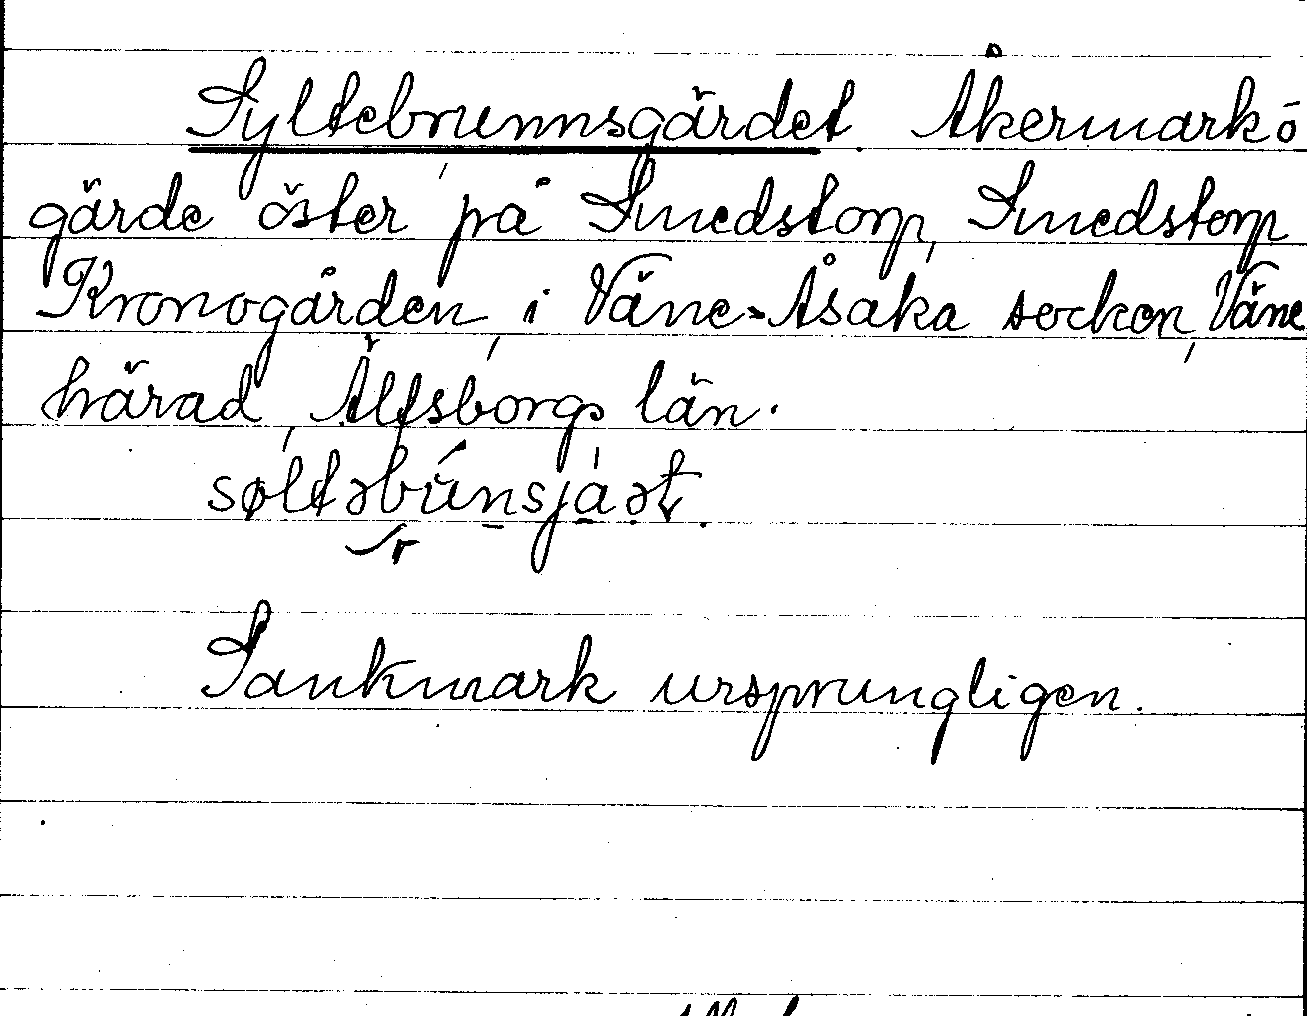 Syltebrunnsgärdet. Åkermarks-
gärde öster på Smedstorp, Smedstorp
Kronogården, i Väne-Åsaka socken, Väne
härad, Älfsborgs län.
Sankmark ursprungligen.